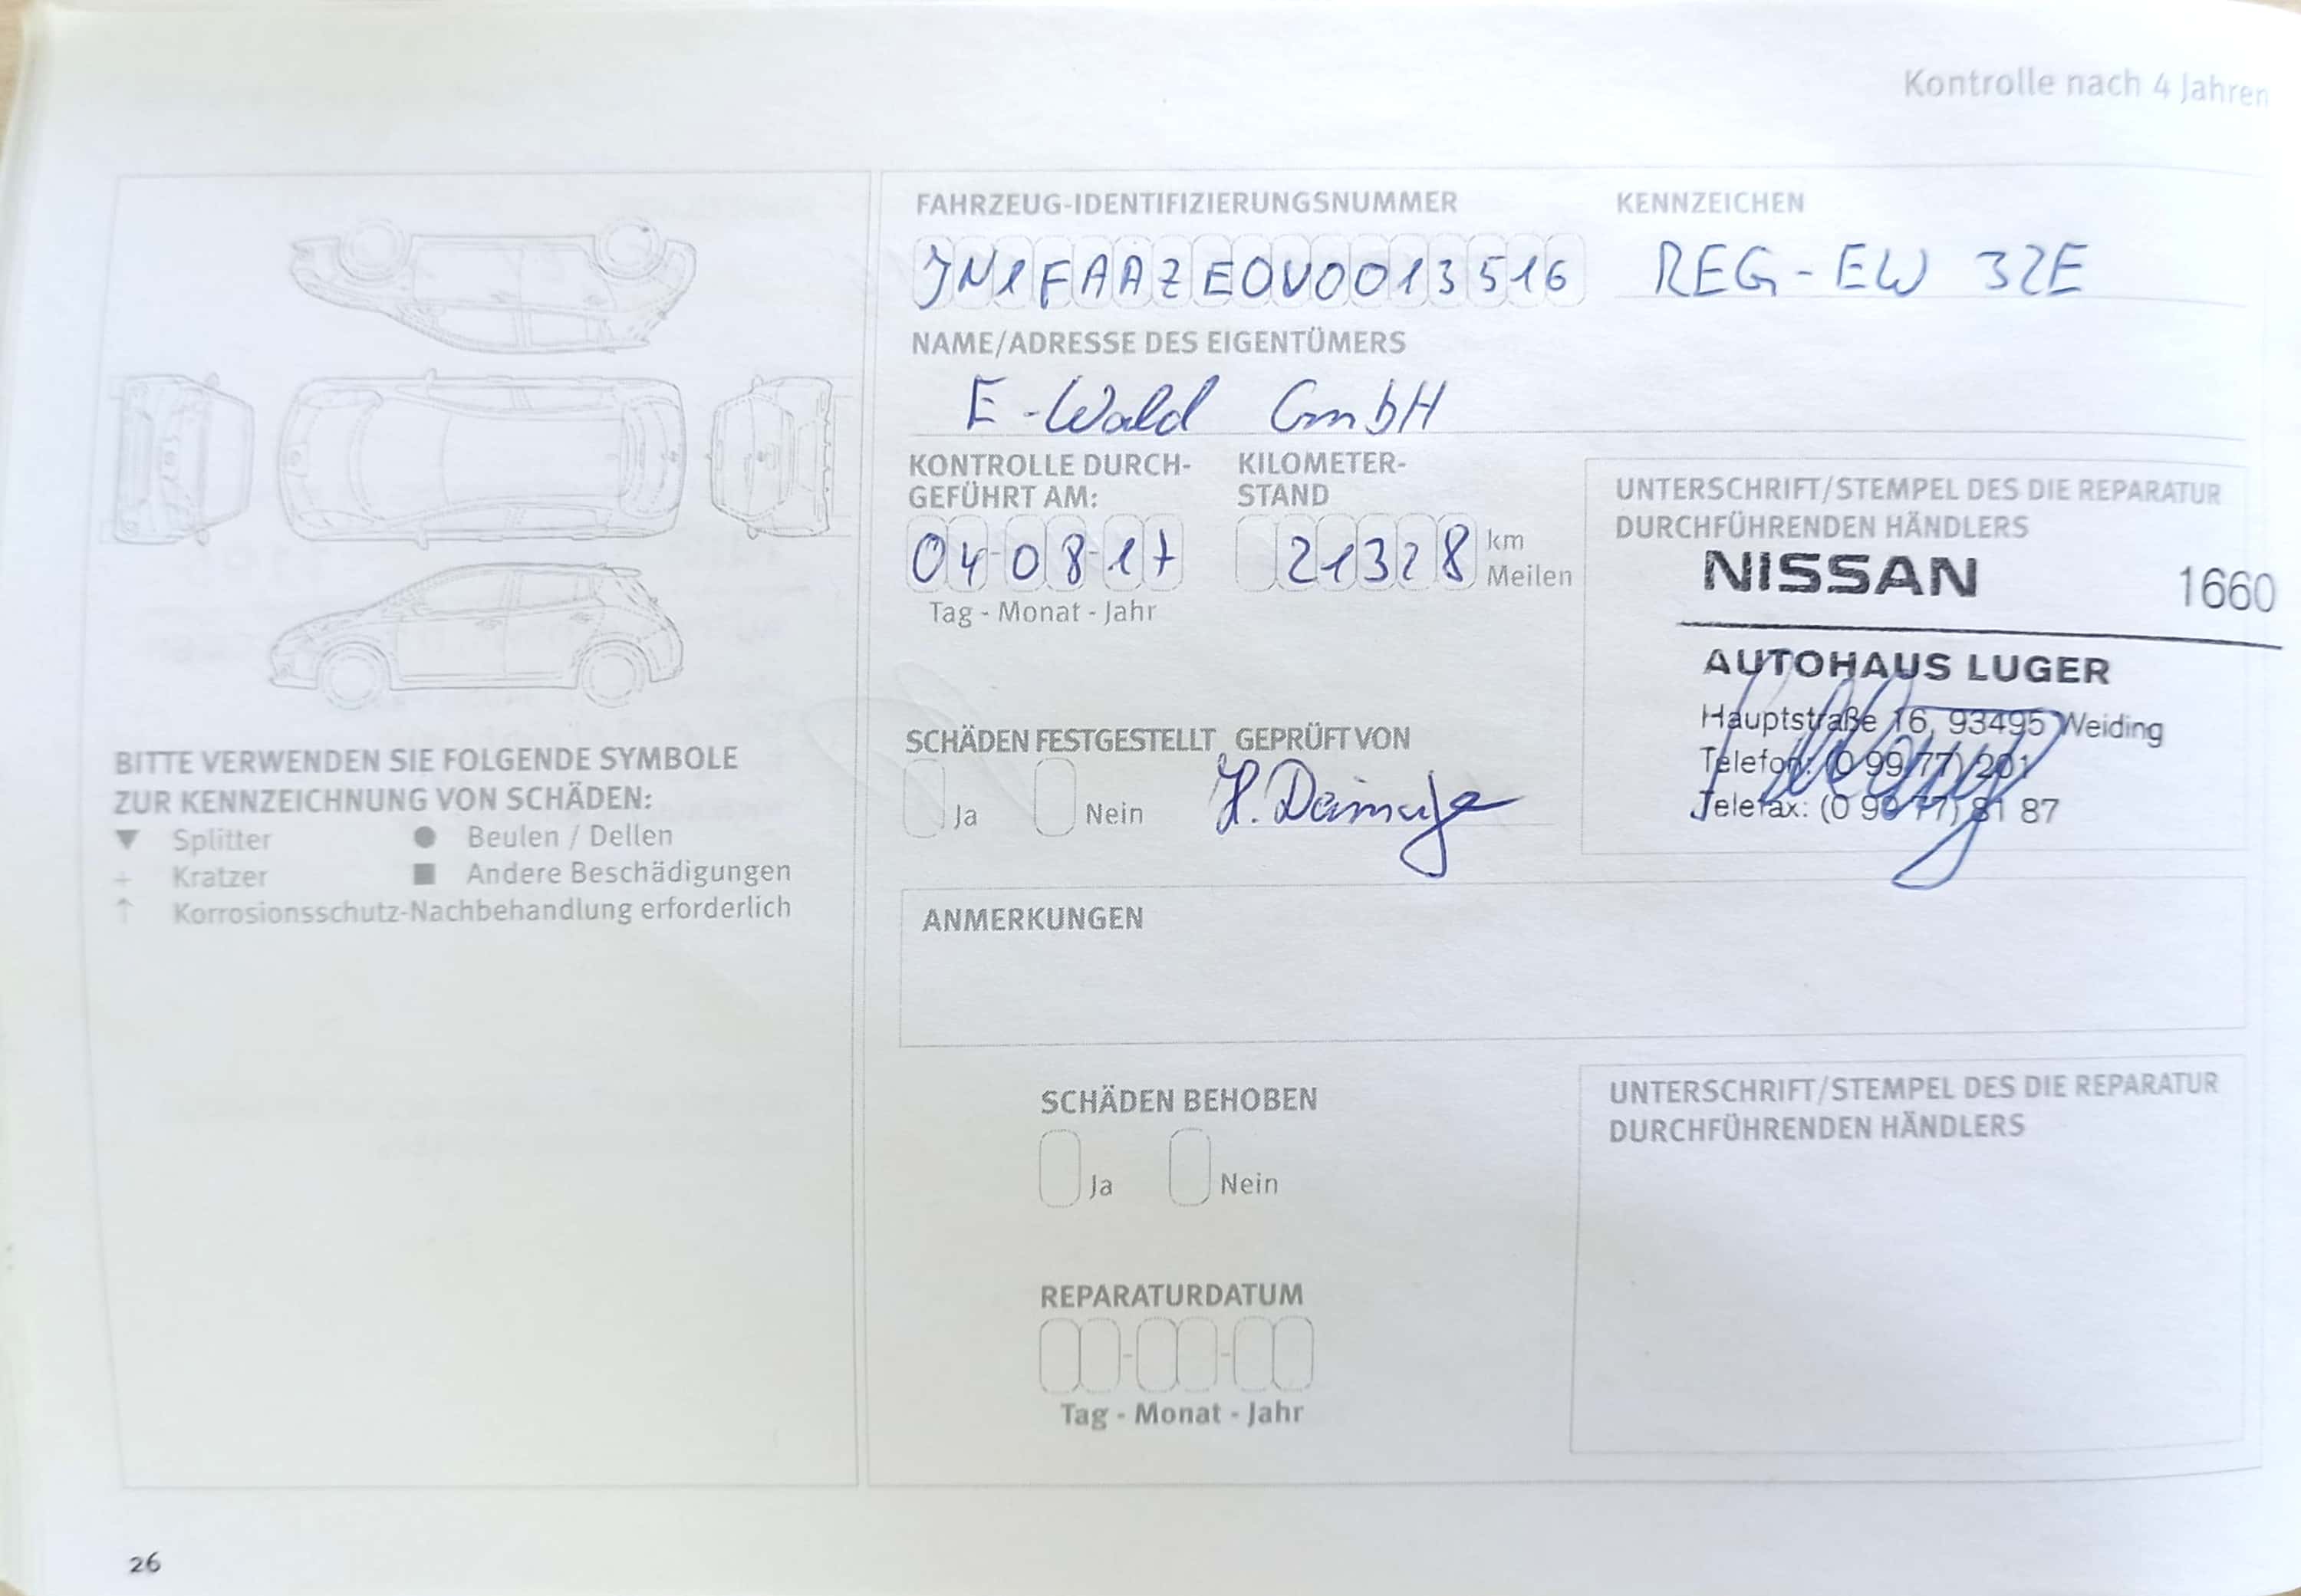 Kontrolle nach 4 Jahren
FAHRZEUG-IDENTIFIZIERUNGSNUMMER
KENNZEICHEN
JN1FAAZE0V0013516
REG-EW 32E
NAME/ADRESSE DES EIGENTÜMERS
E-Wald GmbH
KONTROLLE DURCH-
GEFÜHRT AM:
04-08-17
Tag - Monat - Jahr
KILOMETER-
STAND
21328 km
Meilen
UNTERSCHRIFT/STEMPEL DES DIE REPARATUR
DURCHFÜHRENDEN HÄNDLERS
NISSAN 1660
AUTOHAUS LUGER
Hauptstraße 16, 93495 Weiding
Telefon: (0 99 77) 201
Telefax: (0 99 77) 81 87
SCHÄDEN FESTGESTELLT
Ja
Nein
GEPRÜFT VON
H.
BITTE VERWENDEN SIE FOLGENDE SYMBOLE
ZUR KENNZEICHNUNG VON SCHÄDEN:
▼ Splitter
● Beulen / Dellen
+ Kratzer
■ Andere Beschädigungen
↑ Korrosionsschutz-Nachbehandlung erforderlich
ANMERKUNGEN
SCHÄDEN BEHOBEN
Ja
Nein
UNTERSCHRIFT/STEMPEL DES DIE REPARATUR
DURCHFÜHRENDEN HÄNDLERS
REPARATURDATUM
Tag - Monat - Jahr
26